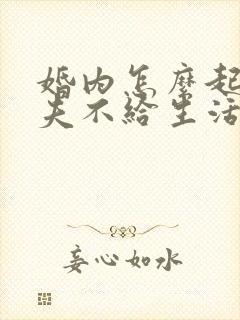 婚内怎麽起
夫不给生活
妄心如水